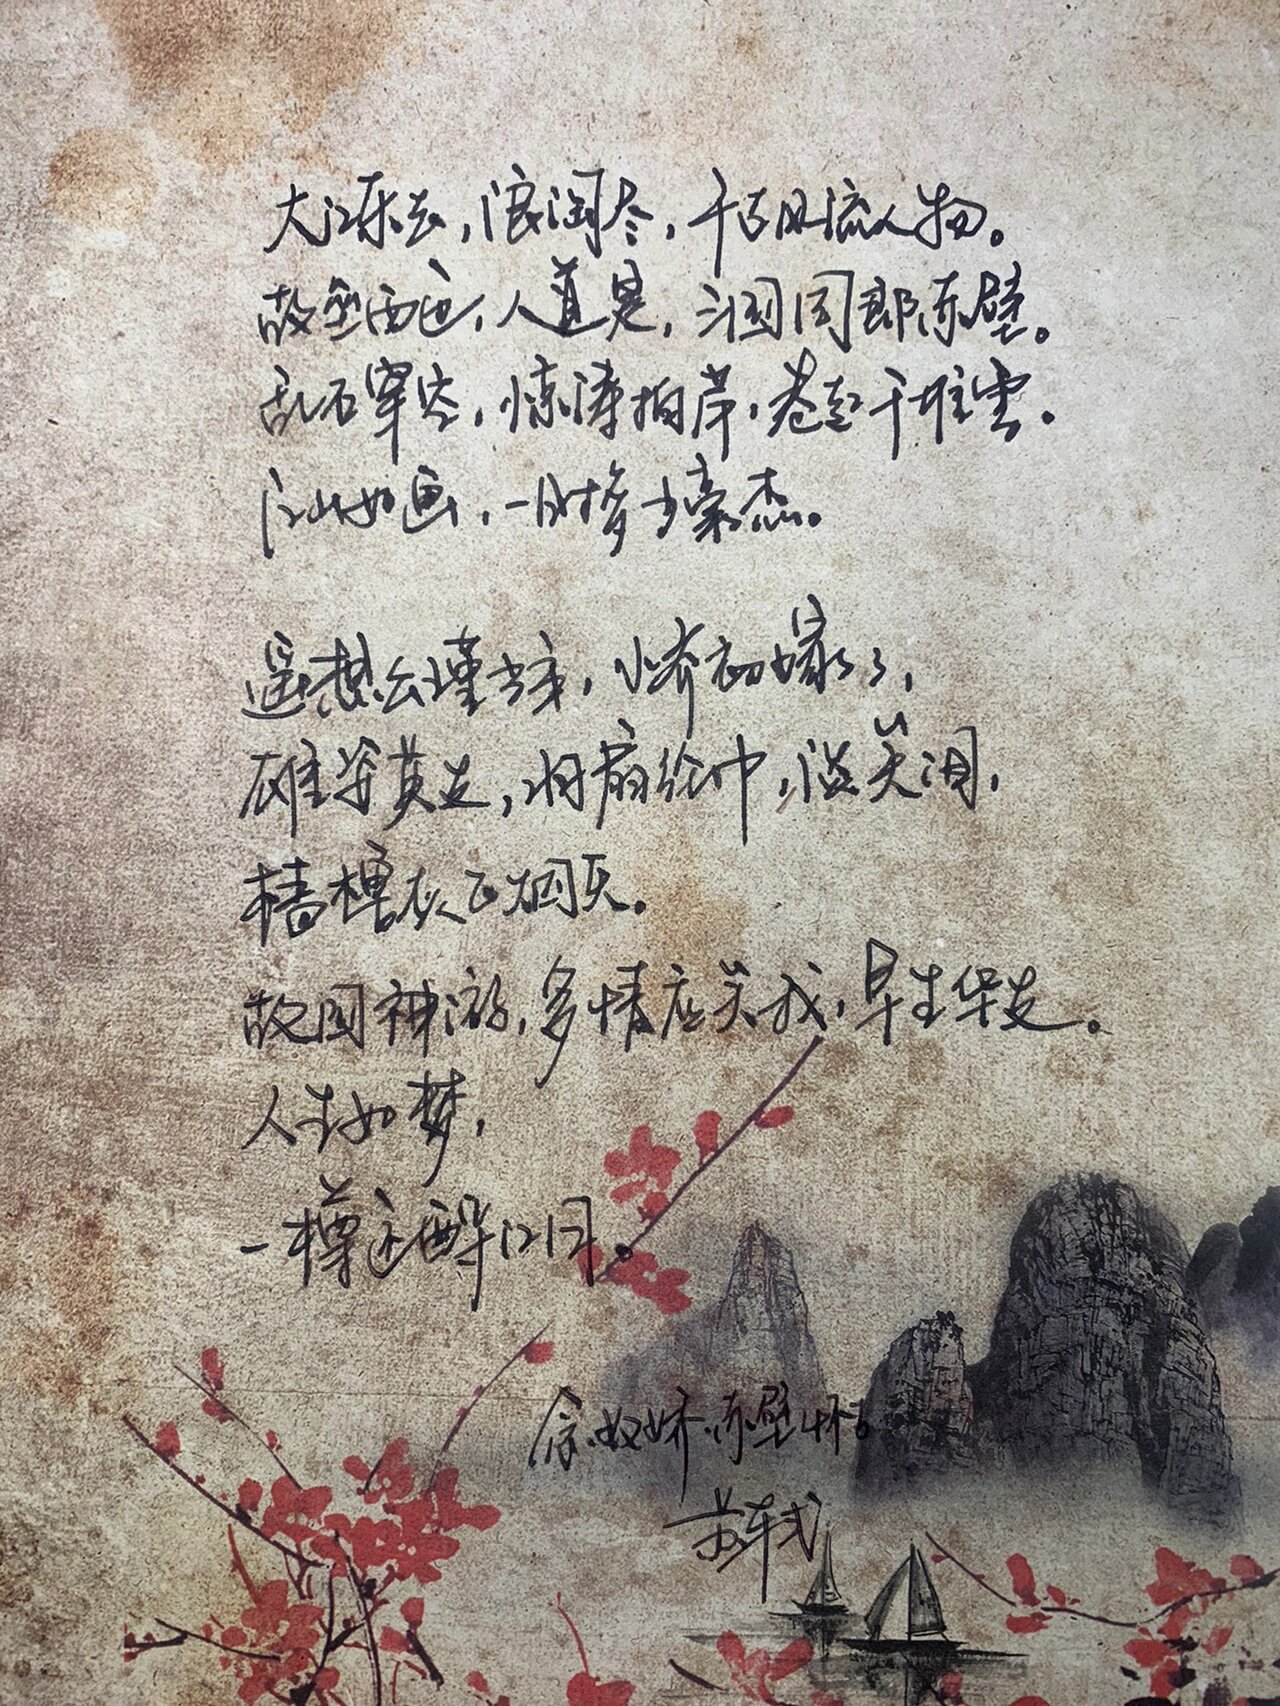 大江东去，浪淘尽，千古风流人物。
故垒西边，人道是，三国周郎赤壁。
乱石穿空，惊涛拍岸，卷起千堆雪。
江山如画，一时多少豪杰。
遥想公瑾当年，小乔初嫁了，
雄姿英发，羽扇纶巾，谈笑间，
樯橹灰飞烟灭。
故国神游，多情应笑我，早生华发。
人生如梦，
一樽还酹江月。
念奴娇·赤壁怀古
苏轼